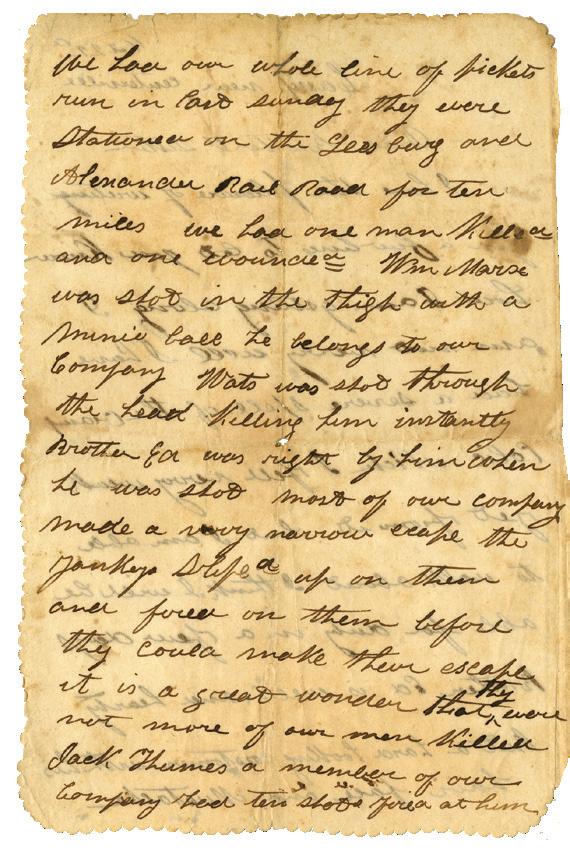 We had our whole line of pickets
run in last sunday they were
stationed on the Leesburg and
Alexander Rail Road for ten
miles we had one man Killed
and one wounded Wm Marx
was shot in the thigh with a
Minie ball he belongs to our
Company Wats was shot through
the head Killing him instantly
Brother Ed was right by him when
he was shot most of our company
made a very narrow ecape the
Yankys sliped up on them
and fored on them before
thy could make their escape
it is a great wonder that thy were
not more of our men Killed
Jack Thumes a member of our
Company had ten shots fored at him